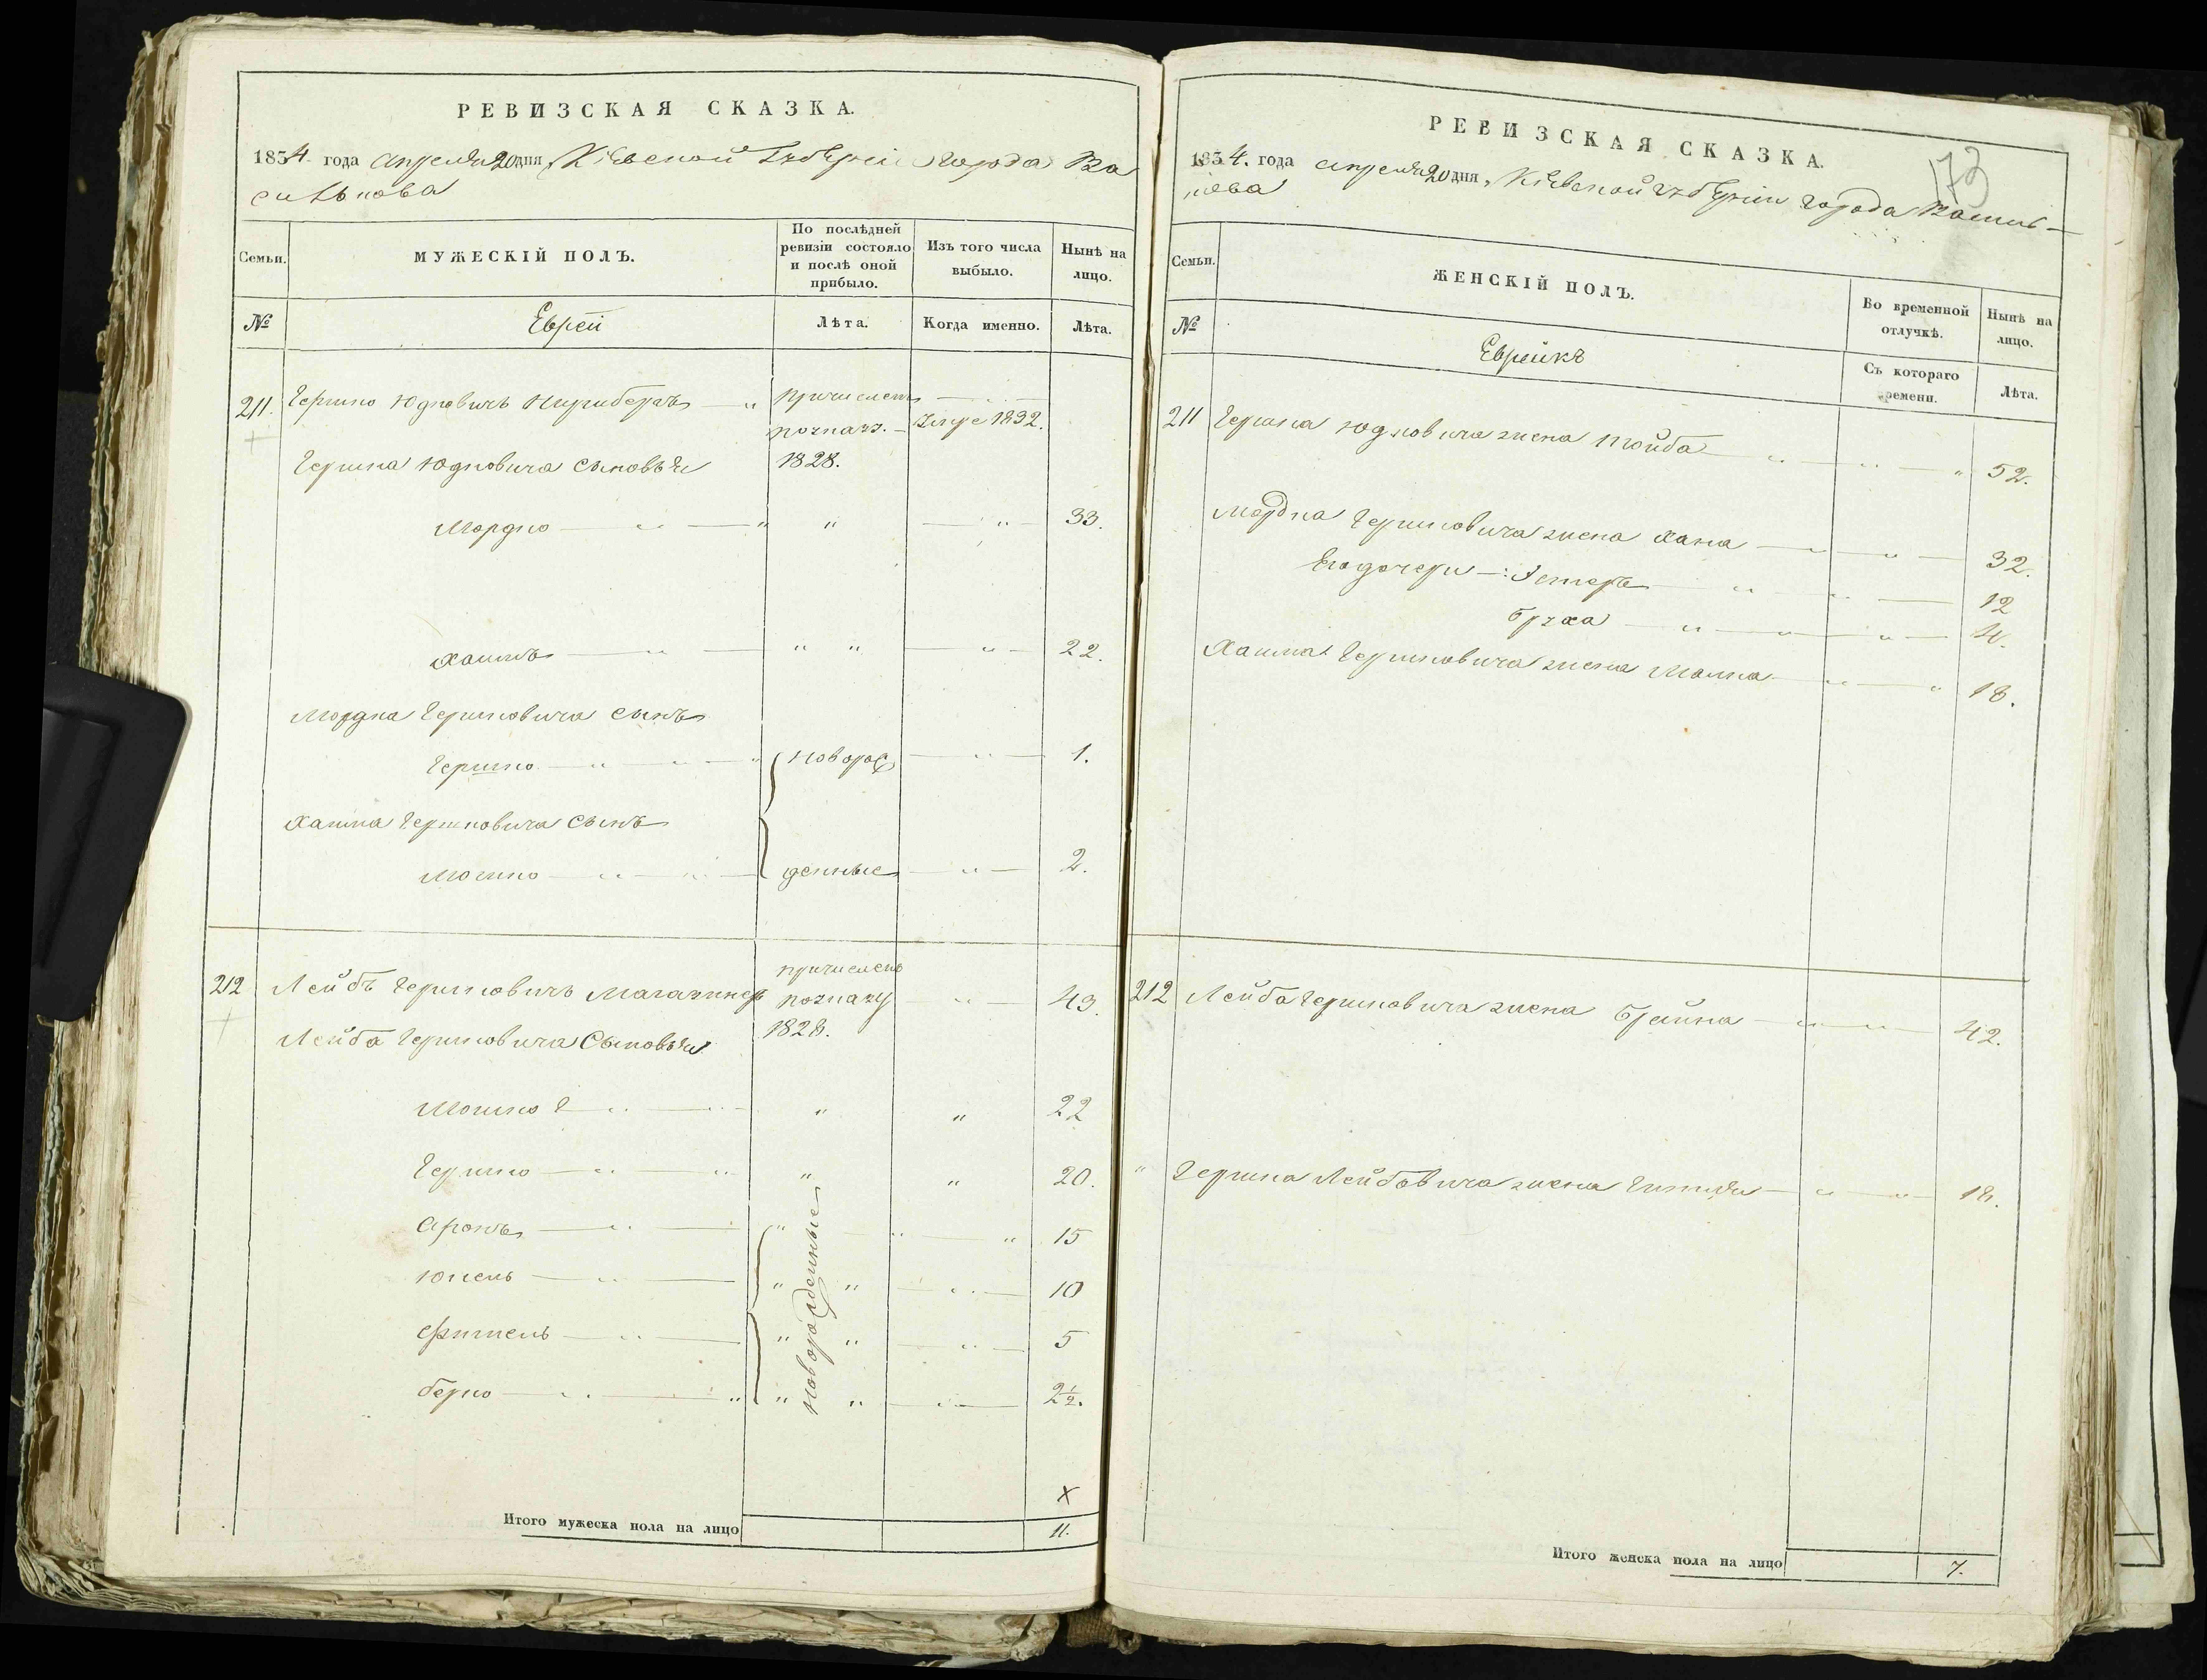 РЕВИЗСКАЯ СКАЗКА.
1834 года апреля 20 дня, Кіевской Губерніи города Ва
силькова
Семьи.
МУЖЕСКІЙ ПОЛЪ.
По послѣдней ревизіи состояло и послѣ оной прибыло.
Изъ того числа выбыло.
Нынѣ на лицо.
№
Еврей
Лѣта.
Когда именно.
Лѣта.
211. Гершко Юдковичъ причисленъ
1832.
Гершка Юдковича сыновья 1828.
Мордко " " 33.
Хаимъ " " " 22.
Мордка Гершковича сынъ
Гершко новорож " 1.
Хаима Гершковича сынъ
Мошко денные " 2.
212 Лейбъ Гершковичъ Магазинеръ причисленъ " 43.
Лейба Гершковича Сыновья 1828.
Мошко " " 22
Гершко " " 20.
Аронъ " " " 15
Юкель " " " 10
Фишель " " " 5
Берко " " " 2½.
новорожденные
х
Итого мужеска пола на лицо 11.
РЕВИЗСКАЯ СКАЗКА.
173
1834. года апреля 20 дня, Кіевской губерніи города Василь-
кова
Семьи.
ЖЕНСКІЙ ПОЛЪ.
Во временной отлучкѣ.
Нынѣ на лицо.
№
Еврейкъ
Съ котораго времени.
Лѣта.
211 Гершка Юдковича жена Тойба " " " 52.
Мордка Гершковича жена Хана " " 32.
Его дочери: Естеръ " " 12
Бруха " " " 4.
Хаима Гершковича жена Малка " " 18.
212 Лейба Гершковича жена Брайна " " 42.
" Гершка Лейбовича жена Гитля " " 18.
Итого женска пола на лицо 7.